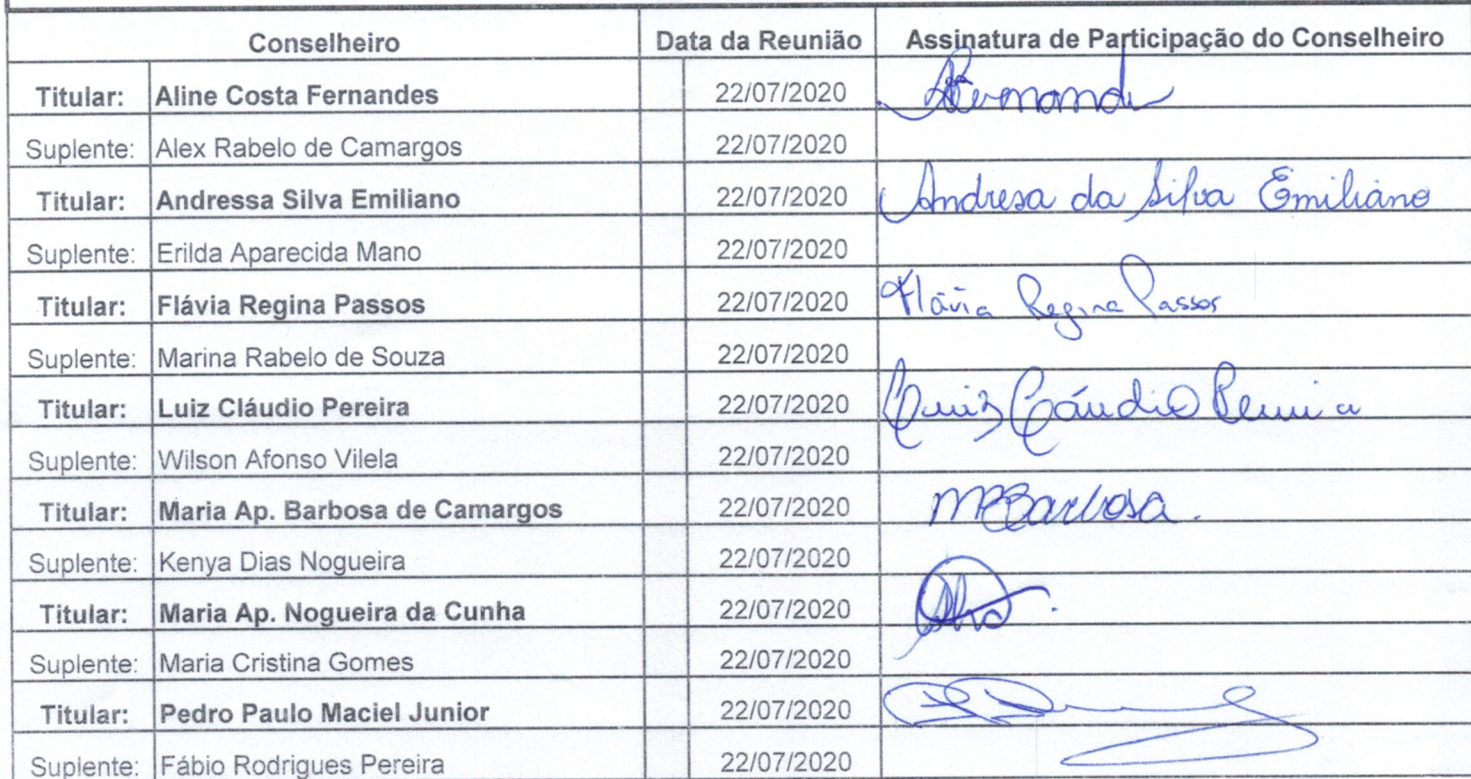 Conselheiro Data da Reunião Assinatura de Participação do Conselheiro
Titular: Aline Costa Fernandes 22/07/2020
Suplente: Alex Rabelo de Camargos 22/07/2020
Titular: Andressa Silva Emiliano 22/07/2020 Andresa da Silva Emiliano
Suplente: Erilda Aparecida Mano 22/07/2020
Titular: Flávia Regina Passos 22/07/2020 Flávia Regina Passos
Suplente: Marina Rabelo de Souza 22/07/2020
Titular: Luiz Cláudio Pereira 22/07/2020 Luiz Cláudio Pereira
Suplente: Wilson Afonso Vilela 22/07/2020
Titular: Maria Ap. Barbosa de Camargos 22/07/2020 Barbosa.
Suplente: Kenya Dias Nogueira 22/07/2020
Titular: Maria Ap. Nogueira da Cunha 22/07/2020
Suplente: Maria Cristina Gomes 22/07/2020
Titular: Pedro Paulo Maciel Junior 22/07/2020
Suplente: Fábio Rodrigues Pereira 22/07/2020